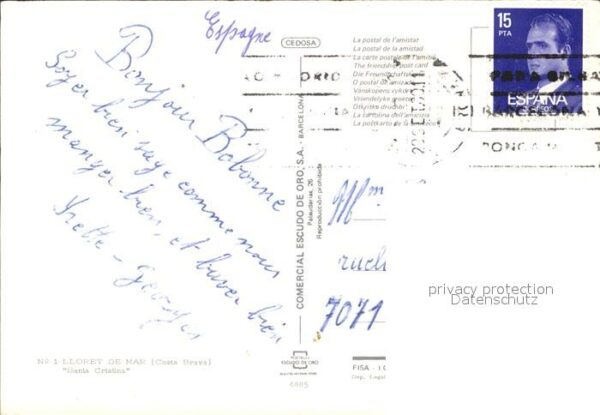 Espagne
Bonjour Bobonne
Soyer bien sage comme nous
manger bien, et buver bien
Yvette - Georges
CEDOSA
La postal de l'amistat
La postal de la amistad
La carte postale de l'amitié
The friendship post card
Die Freundschaftskarte
O postal de amizade
Vänskapens vykort
Vriendelyke groeten
La cartolina dell'amicizia
15
PTA
ESPAÑA
BARCELONA
COMERCIAL ESCUDO DE ORO, S.A. - BARCELONA
Palaudarias, 26
Reproducción prohibida
Mm
ruch
7071
privacy protection
Datenschutz
Nº 1-LLORET DE MAR (Costa Brava)
"Santa Cristina"
ESCUDO DE ORO
FISA - I.
Dep. Legal